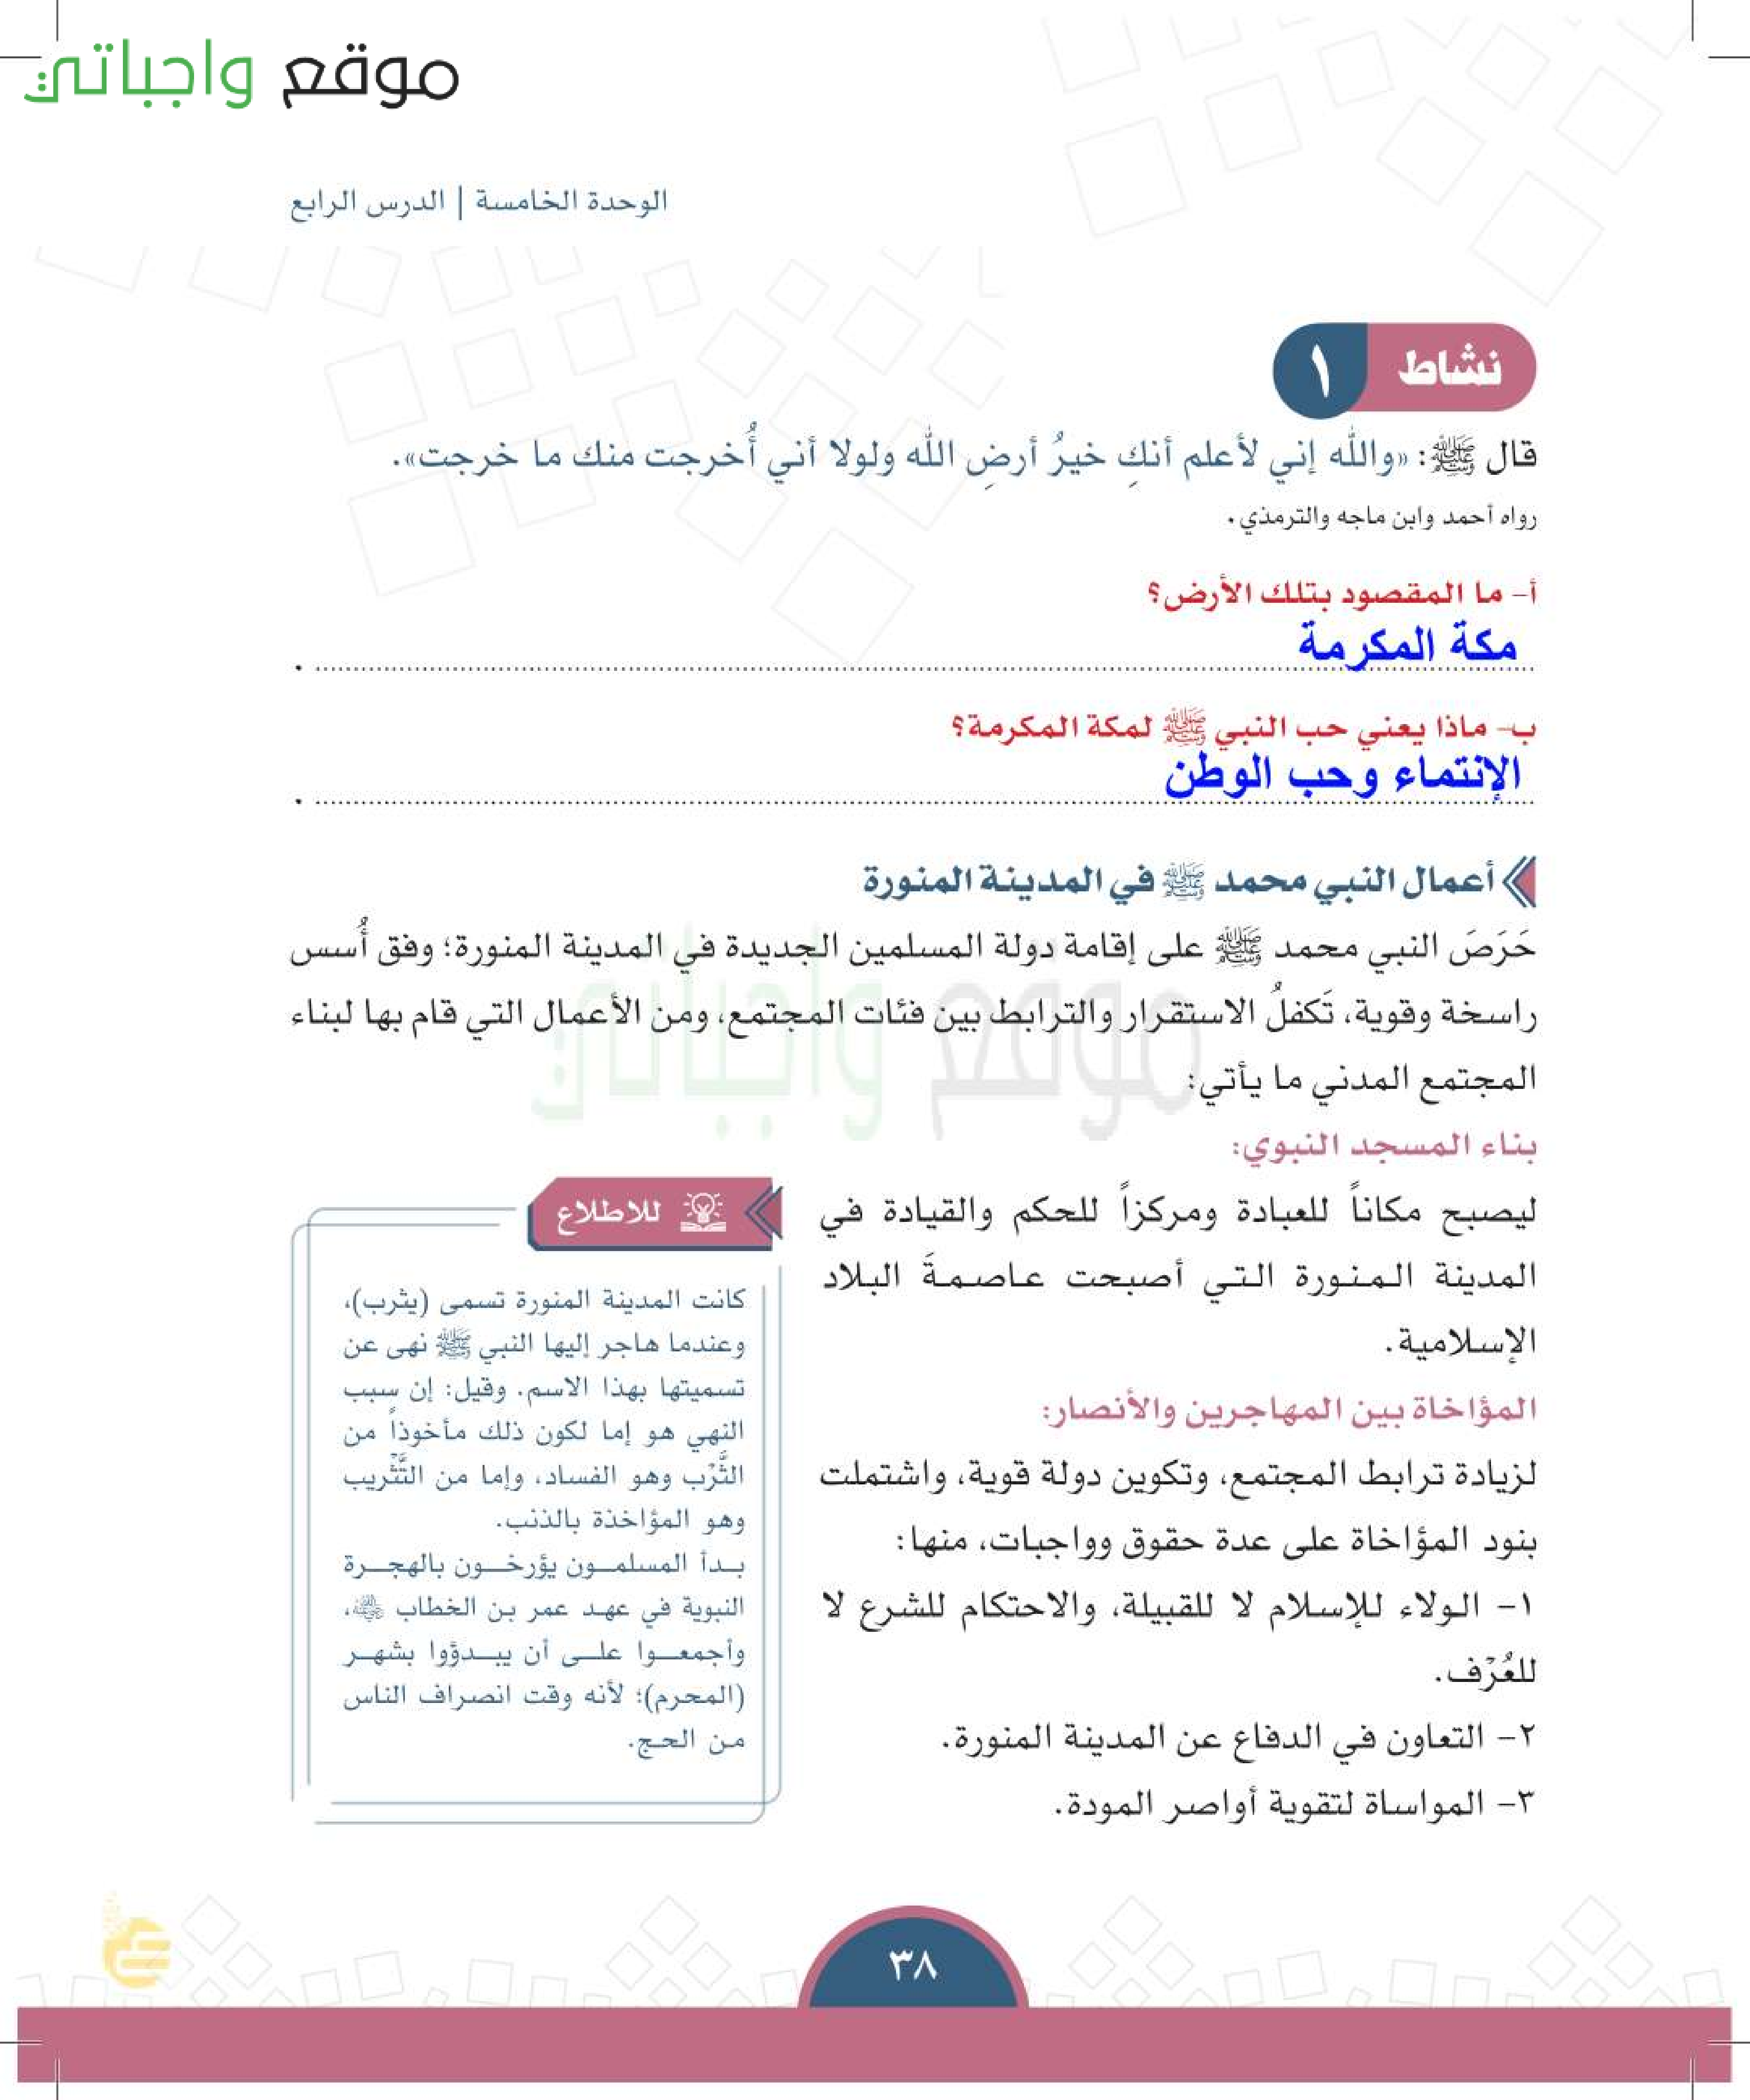 موقع واجباتي
الوحدة الخامسة | الدرس الرابع
نشاط ١
قال ﷺ: «والله إني لأعلم أنكِ خيرُ أرضِ الله ولولا أني أُخرجت منك ما خرجت».
رواه أحمد وابن ماجه والترمذي.
أ- ما المقصود بتلك الأرض؟
مكة المكرمة
ب- ماذا يعني حب النبي ﷺ لمكة المكرمة؟
الإنتماء وحب الوطن
أعمال النبي محمد ﷺ في المدينة المنورة
حَرَصَ النبي محمد ﷺ على إقامة دولة المسلمين الجديدة في المدينة المنورة؛ وفق أُسس
راسخة وقوية، تَكفلُ الاستقرار والترابط بين فئات المجتمع، ومن الأعمال التي قام بها لبناء
المجتمع المدني ما يأتي:
موقع واجباتي
بناء المسجد النبوي:
ليصبح مكاناً للعبادة ومركزاً للحكم والقيادة في
المدينة المنورة التي أصبحت عاصمةَ البلاد
الإسلامية.
المؤاخاة بين المهاجرين والأنصار:
لزيادة ترابط المجتمع، وتكوين دولة قوية، واشتملت
بنود المؤاخاة على عدة حقوق وواجبات، منها:
١- الولاء للإسلام لا للقبيلة، والاحتكام للشرع لا
للعُرْف.
٢- التعاون في الدفاع عن المدينة المنورة.
٣- المواساة لتقوية أواصر المودة.
للاطلاع
كانت المدينة المنورة تسمى (يثرب)،
وعندما هاجر إليها النبي ﷺ نهى عن
تسميتها بهذا الاسم. وقيل: إن سبب
النهي هو إما لكون ذلك مأخوذاً من
الثَّرْب وهو الفساد، وإما من التَّثْريب
وهو المؤاخذة بالذنب.
بدأ المسلمون يؤرخون بالهجرة
النبوية في عهد عمر بن الخطاب رضي الله عنه،
وأجمعوا على أن يبدؤوا بشهر
(المحرم)؛ لأنه وقت انصراف الناس
من الحج.
٣٨